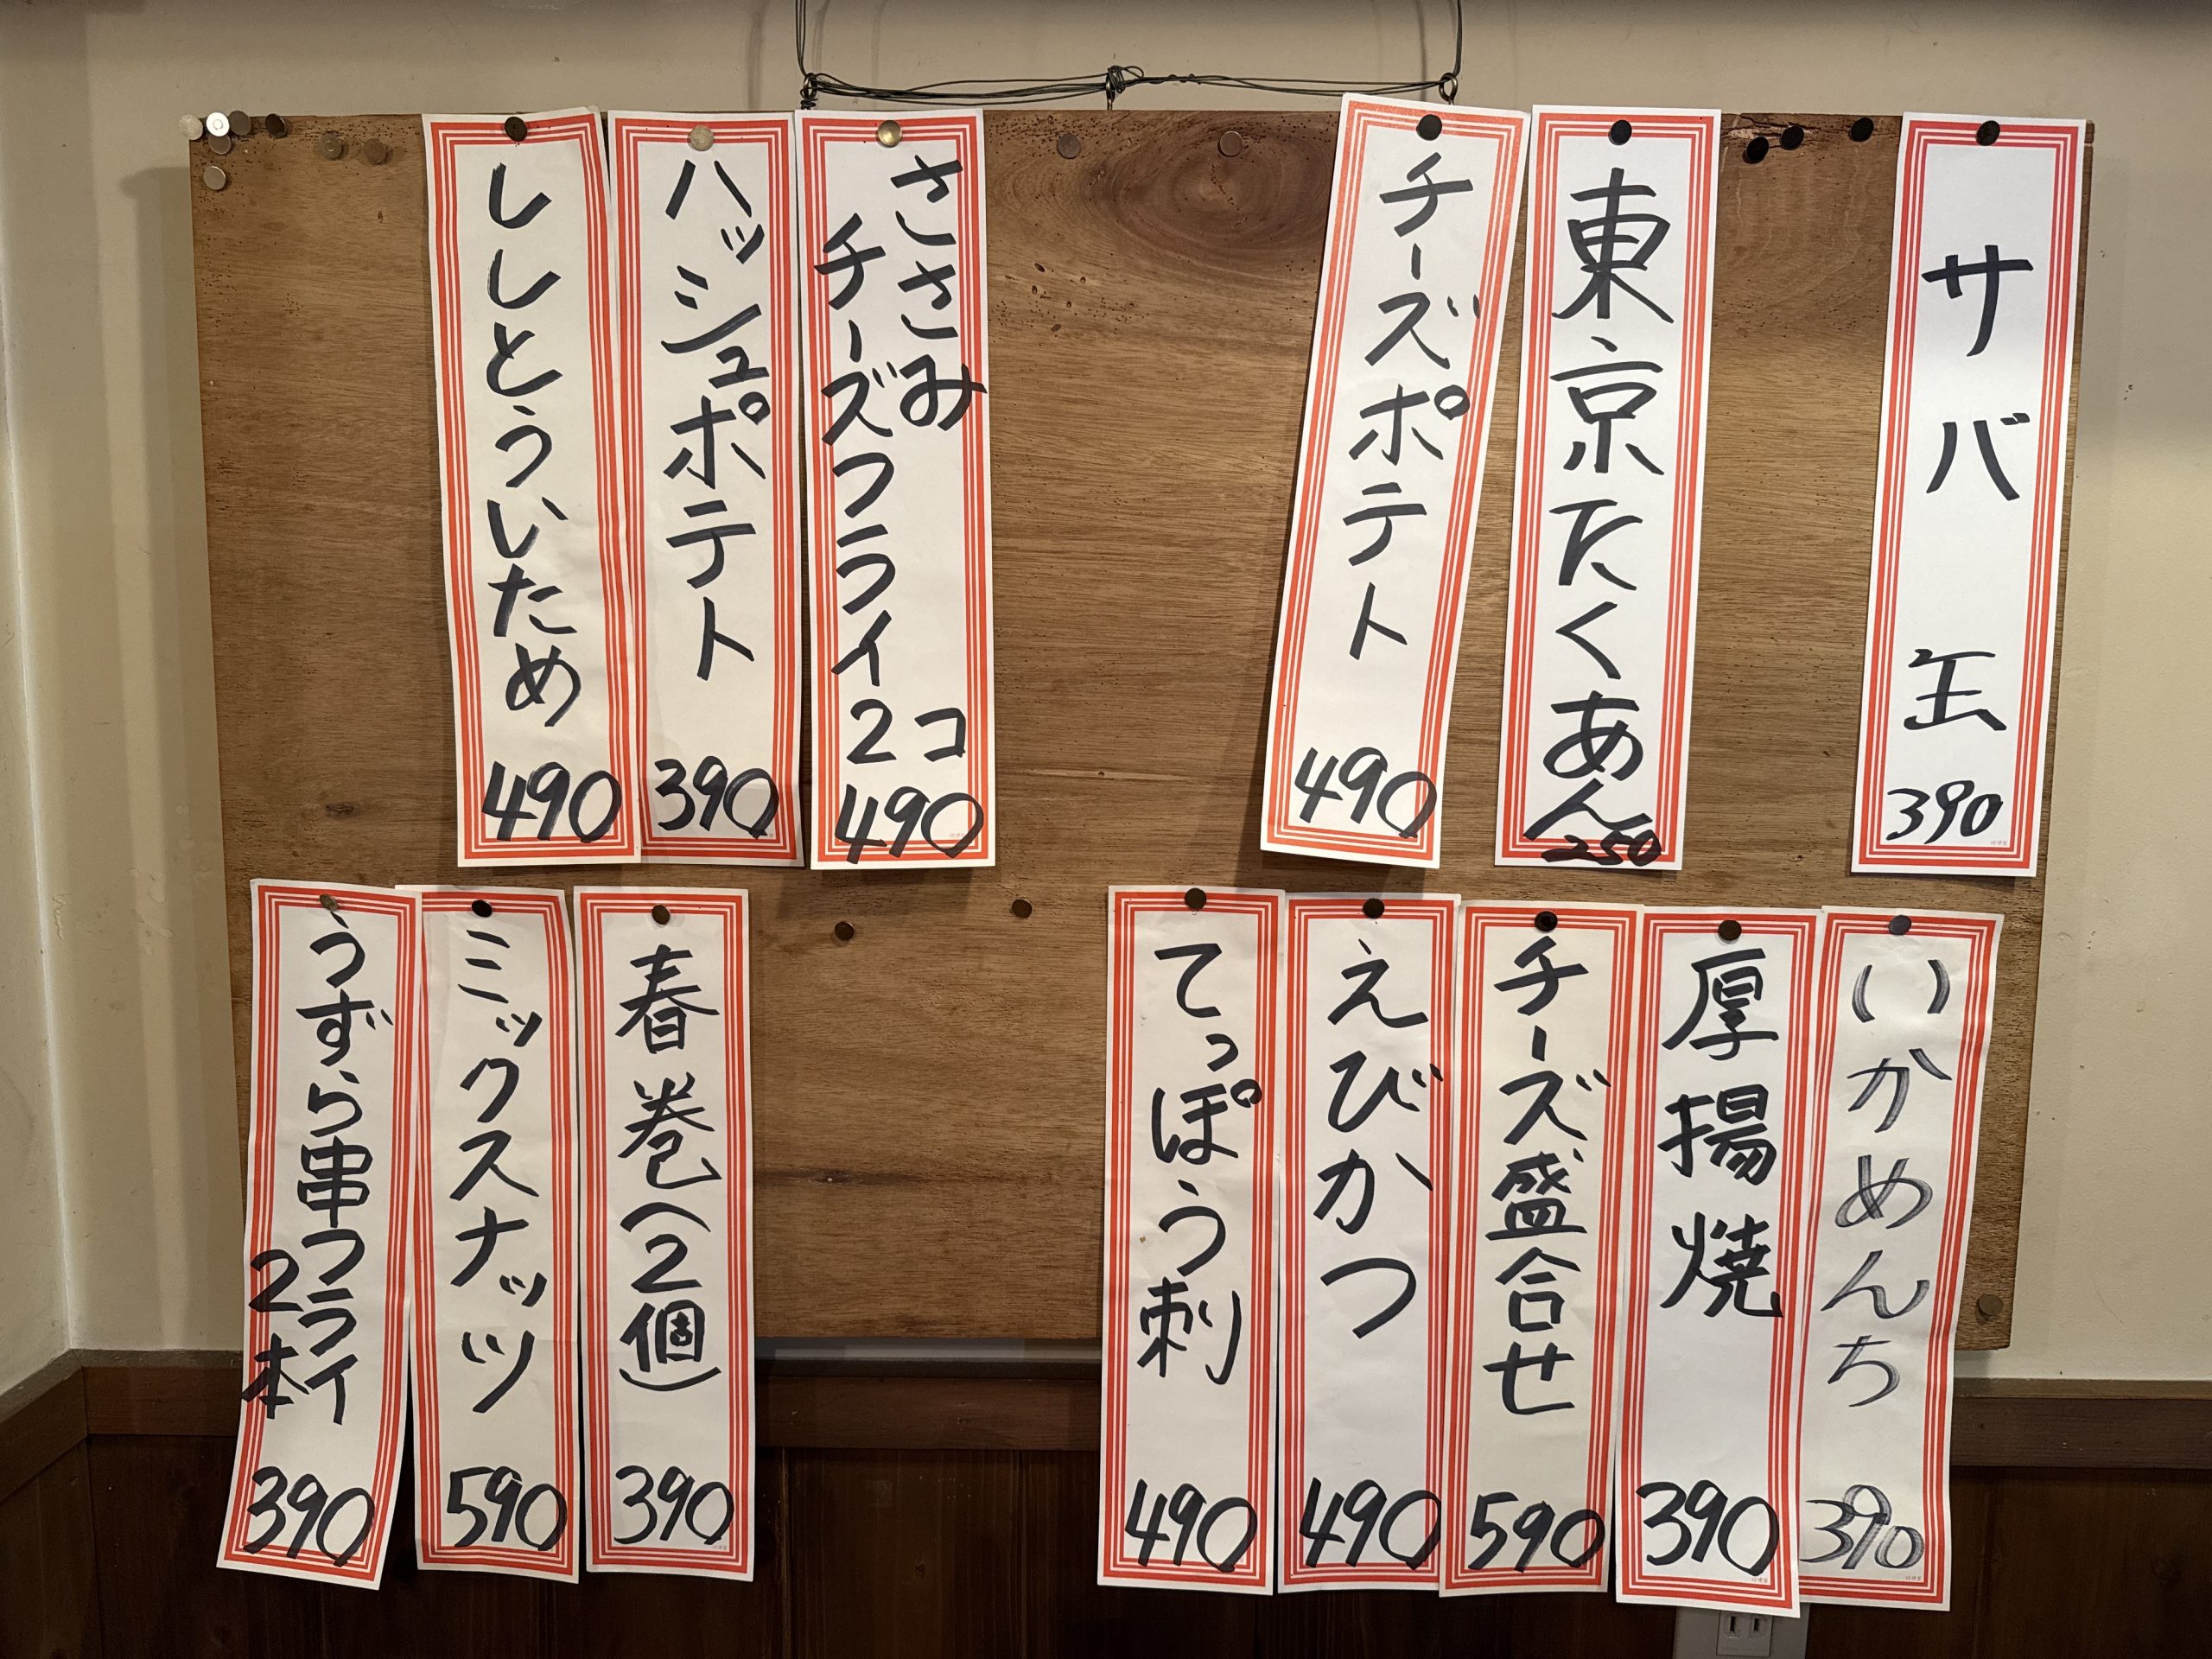 サバ缶
390
東京たくあん
250
チーズポテト
490
ささみ
チーズフライ
2コ
490
ハッシュポテト
390
ししとういため
490
いかめんち
390
厚揚焼
390
チーズ盛合せ
590
えびかつ
490
てっぽう刺
490
春巻(2個)
390
ミックスナッツ
590
うずら串フライ
2本
390